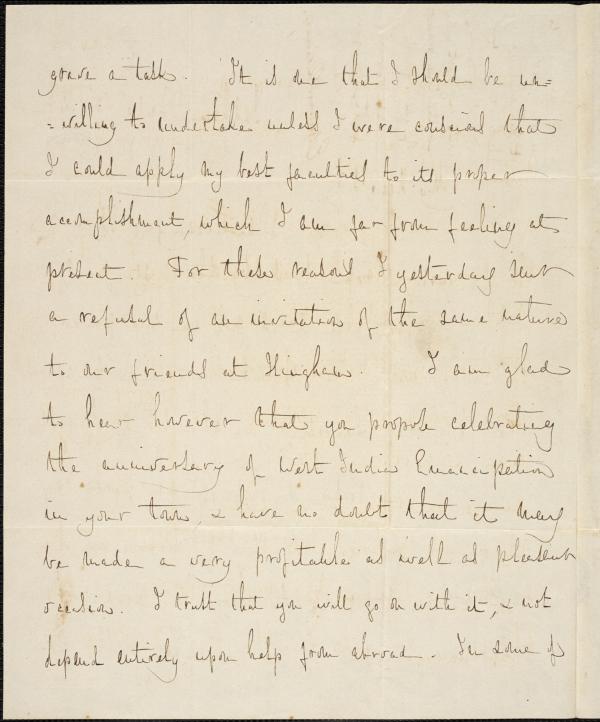 grave a task. It is one that I should be un=
=willing to undertake unless I were conscious that
I could apply my best faculties to its proper
accomplishment, which I am far from feeling at
present. For these reasons I yesterday sent
a refusal of an invitation of the same nature
to our friends at Hingham. I am glad
to hear however that you propose celebrating
the anniversary of West India Emancipation
in your town, & have no doubt that it may
be made a very profitable as well as pleasant
occasion. I trust that you will go on with it, & not
depend entirely upon help from abroad. In some of